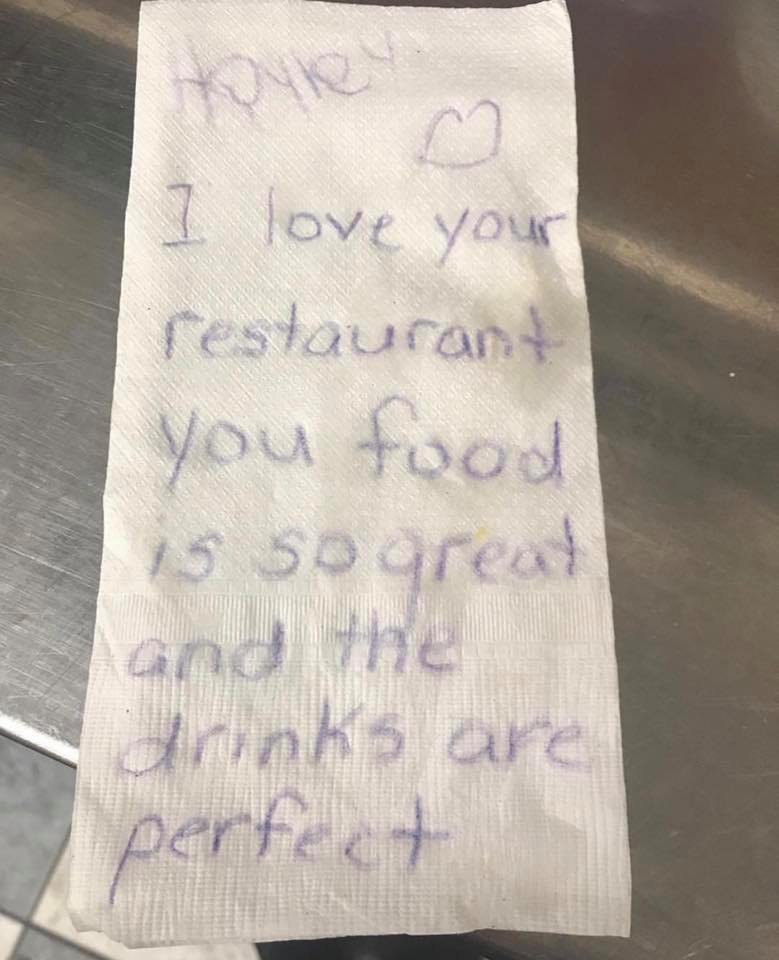 I love your
restaurant
you food
is so great
and the
drinks are
perfect